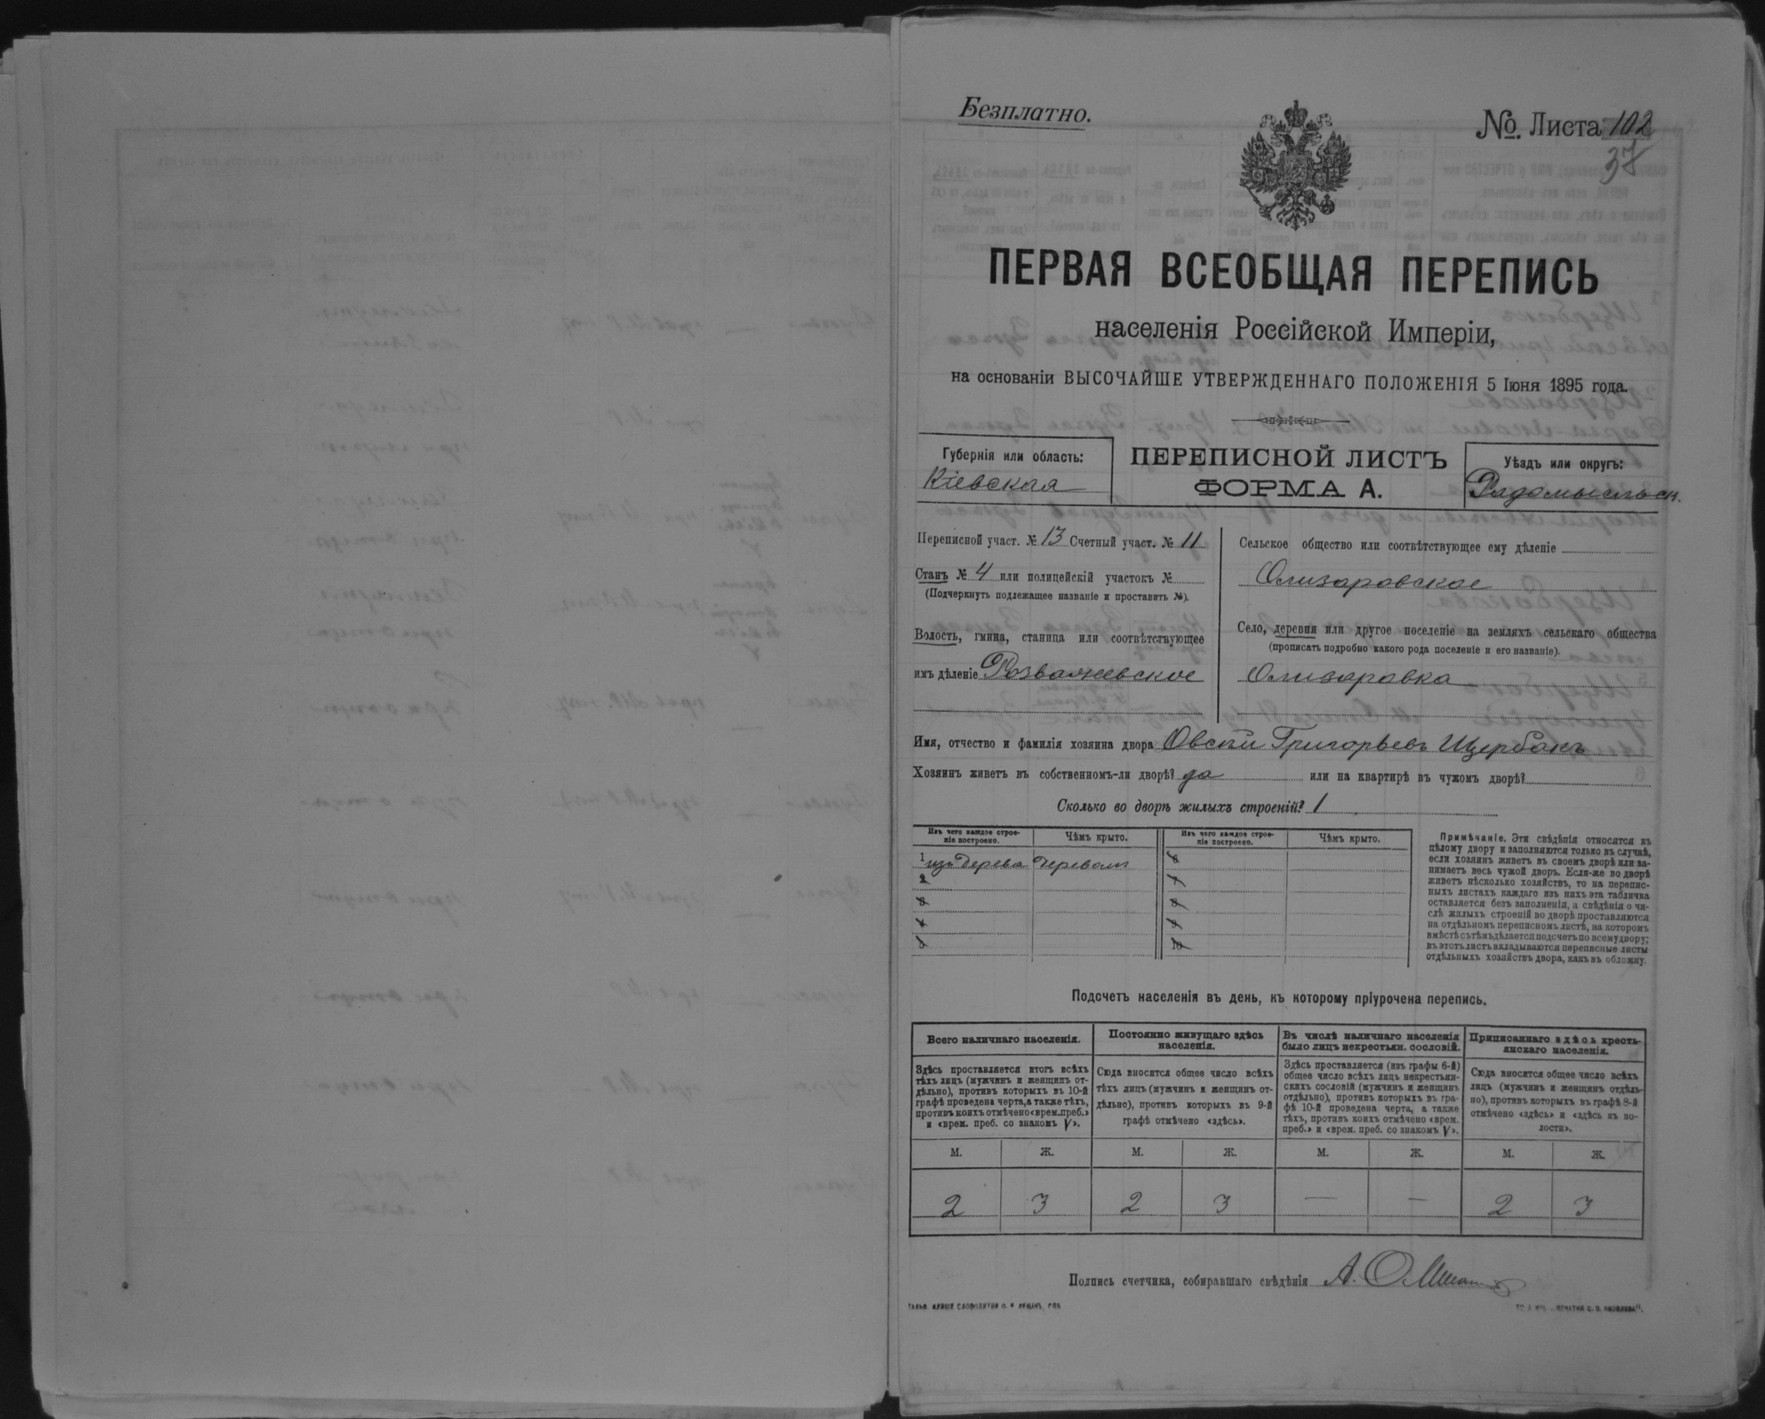 Безплатно.
№ Листа 102
37
ПЕРВАЯ ВСЕОБЩАЯ ПЕРЕПИСЬ
населенія Россійской Имперіи,
на основаніи ВЫСОЧАЙШЕ УТВЕРЖДЕННАГО ПОЛОЖЕНІЯ 5 Іюня 1895 года.
Губернія или область:
Кіевская
ПЕРЕПИСНОЙ ЛИСТЪ
ФОРМА А.
Уѣздъ или округъ:
Радомысльск.
Переписной участ. № 13 Счетный участ. № 11
Станъ № 4 или полицейскій участокъ №
(Подчеркнуть подлежащее названіе и проставить №).
Волость, гмина, станица или соотвѣтствующее
имъ дѣленіе Розважевское
Сельское общество или соотвѣтствующее ему дѣленіе
Олизаровское
Село, деревня или другое поселеніе на земляхъ сельскаго общества
(прописать подробно какого рода поселеніе и его названіе).
Олизаровка
Имя, отчество и фамилія хозяина двора Овсѣй Григорьевъ Щербакъ
Хозяинъ живетъ въ собственномъ-ли дворѣ? да или на квартирѣ въ чужомъ дворѣ?
Сколько во дворѣ жилыхъ строеній? 1
Изъ чего каждое строе-
ніе построено.
Чѣмъ крыто.
Изъ чего каждое строе-
ніе построено.
Чѣмъ крыто.
1 изъ дерева деревом
2
3
4
5
6
7
8
9
10
Примѣчаніе. Эти свѣдѣнія относятся къ
цѣлому двору и заполняются только въ случаѣ,
если хозяинъ живетъ въ своемъ дворѣ или за-
нимаетъ весь чужой дворъ. Если-же во дворѣ
живетъ нѣсколько хозяйствъ, то на перепис-
ныхъ листахъ каждаго изъ нихъ эта табличка
оставляется безъ заполненія, а свѣдѣнія о чи-
слѣ жилыхъ строеній во дворѣ проставляются
на отдѣльномъ переписномъ листѣ, на которомъ
вмѣстѣ съ тѣмъ дѣлается подсчетъ по всему двору;
въ этотъ листъ вкладываются переписные листы
отдѣльныхъ хозяйствъ двора, какъ въ обложку.
Подсчетъ населенія въ день, къ которому пріурочена перепись.
Всего наличнаго населенія.
Здѣсь проставляется итогъ всѣхъ
тѣхъ лицъ (мужчинъ и женщинъ от-
дѣльно), противъ которыхъ въ 10-й
графѣ проведена черта, а также тѣхъ,
противъ коихъ отмѣчено «врем. преб.»
и «врем. преб. со знакомъ V».
Постоянно живущаго здѣсь
населенія.
Сюда вносится общее число всѣхъ
тѣхъ лицъ (мужчинъ и женщинъ от-
дѣльно), противъ которыхъ въ 9-й
графѣ отмѣчено «здѣсь».
Въ числѣ наличнаго населенія
было лицъ некрестьян. сословій.
Здѣсь проставляется (изъ графы 6-й)
общее число всѣхъ лицъ некрестьян-
скихъ сословій (мужчинъ и женщинъ
отдѣльно), противъ которыхъ въ гра-
фѣ 10-й проведена черта, а также
тѣхъ, противъ коихъ отмѣчено «врем.
преб.» и «врем. преб. со знакомъ V».
Приписаннаго здѣсь кресть-
янскаго населенія.
Сюда вносится общее число всѣхъ
лицъ (мужчинъ и женщинъ отдѣль-
но), противъ которыхъ въ графѣ 8-й
отмѣчено «здѣсь» и «здѣсь къ во-
лости».
М. Ж. М. Ж. М. Ж. М. Ж.
2 3 2 3 — — 2 3
Подпись счетчика, собиравшаго свѣдѣнія